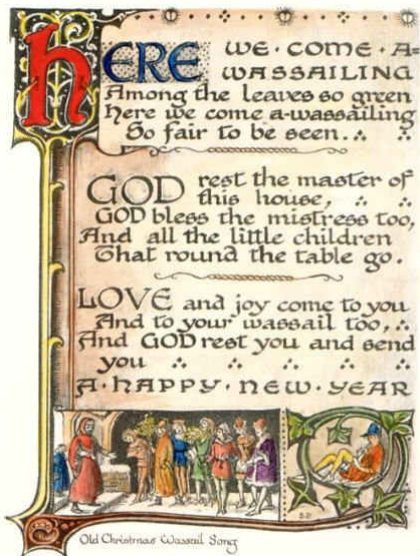 HERE WE·COME·A=
WASSAILING
Among the leaves so green
Here we come a-wassailing
So fair to be seen.
GOD rest the master of
this house,
GOD bless the mistress too,
And all the little children
That round the table go.
LOVE and joy come to you
And to your wassail too,
And GOD rest you and send
you
A·HAPPY·NEW·YEAR
Old Christmas Wassail Song